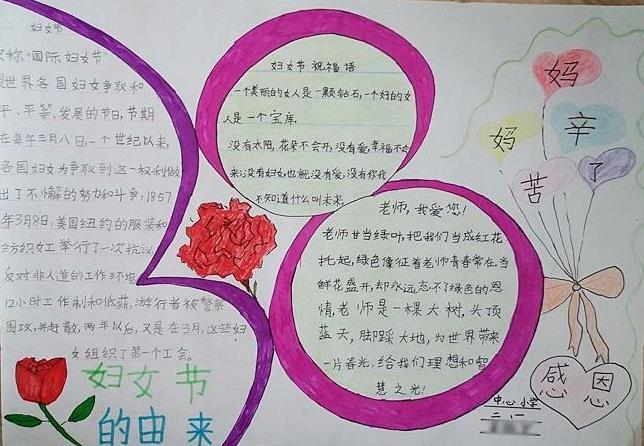 妇女节
又称"国际妇女节"
是世界各国妇女争取和
平、平等、发展的节日,节期
在每年三月八日,一个世纪以来,
各国妇女为争取到这一权利做
出了不懈的努力和斗争;1857
年3月8号,美国纽约的服装和
纺织女工举行了一次抗议,
反对非人道的工作环境
12小时工作制和低薪,游行者被警察
围攻,并赶散,两年以后,又是在3月,这些妇
女组织了第一个工会。
妇女节
的由来
妇女节祝福语
一个美丽的女人是一颗钻石,一个好的女
人是一个宝库。
没有太阳,花朵不会开,没有爱,幸福不会
来;没有妇女,也就没有爱,没有你我
不知道什么叫未来。
老师,我爱您!
老师甘当绿叶,把我们当成红花
托起,绿色像征着老师青春常在,当
鲜花盛开,却永远忘不了绿色的恩
情,老师是一棵大树,头顶
蓝天,脚踩大地,为世界带来
一片春光,给我们理想和智
慧之光!
妈
妈
辛
苦
了
感恩
中心小学
二、1